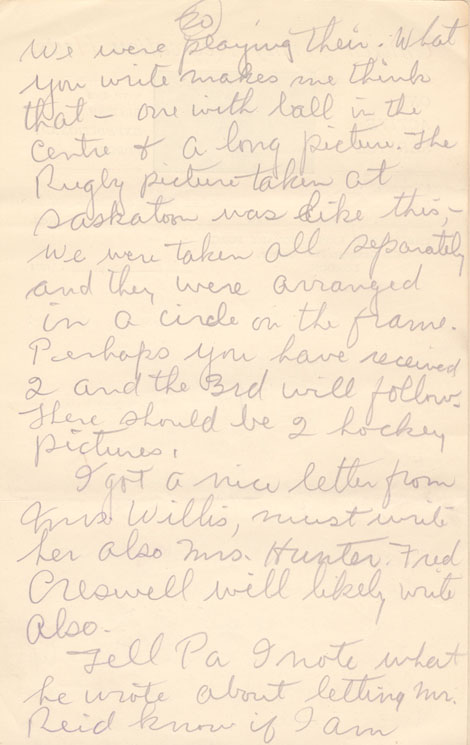 20
We were playing their. What
you write makes me think
that – one with ball in the
centre & a long picture. The
Rugby picture taken at
Saskatoon was like this,–
We were taken all separately
and they were arranged
in a circle on the frame.
Perhaps you have received
2 and the 3rd will follow.
There should be 2 hockey
pictures.
I got a nice letter from
Mrs Willis, must write
her also Mrs. Hunter. Fred
Creswell will likely write
also.
Tell Pa I note what
he wrote about letting Mr.
Reid know if I am